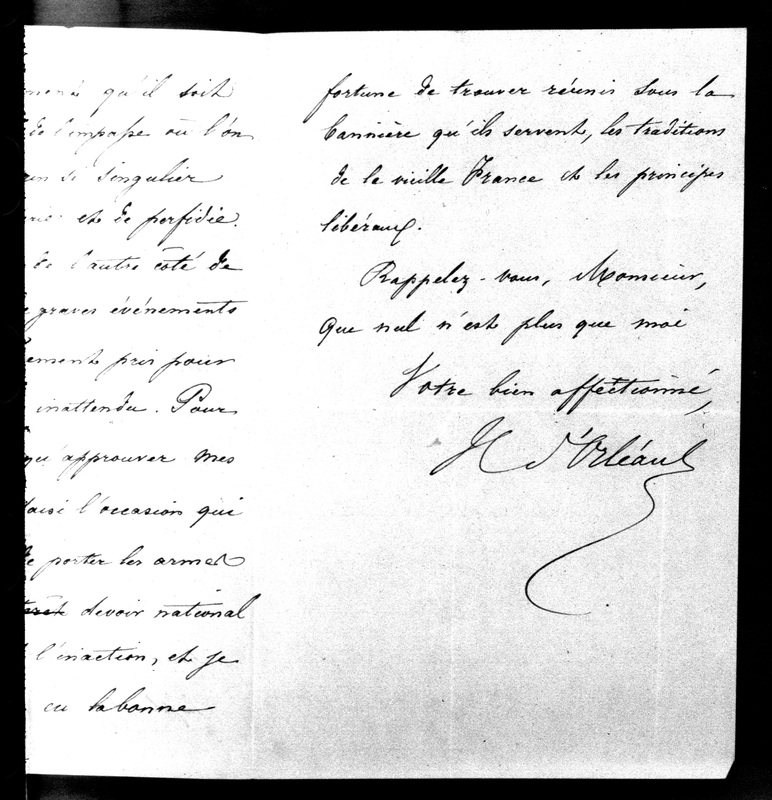 qu'il soit
de l'impasse où l'on
si singulier
et de perfidie.
de l'autre côté de
graves événements
pris pour
inattendu. Pour
qu'approuver mes
l'occasion qui
porter les armes
devoir national
l'inaction, et je
eu la bonne
fortune de trouver réunis sous la
bannière qu'ils servent, les traditions
de la vieille France et les principes
libéraux.
Rappelez-vous, Monsieur,
que nul n'est plus que moi
Votre bien affectionné,
H d'Orléans